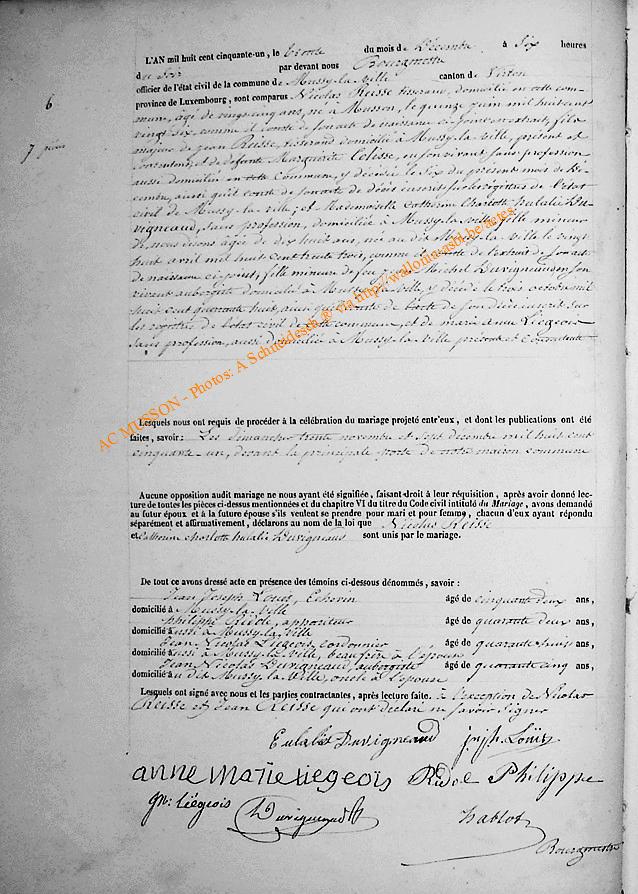 6
7
L'AN mil huit cent cinquante-un, le trente du mois de Décembre à Six heures
du Soir par devant nous Bourgmestre
officier de l'état civil de la commune de Mussy-la-Ville canton de Virton
province de Luxembourg, sont comparus Nicolas Reisse tisserand, domicilié en cette com-
mune, âgé de vingt cinq ans, né à Musson, le quinze juin mil huit cent
vingt six comme il conste de son acte de naissance ci joint en extrait, fils
majeur de Jean Reisse, tisserand domicilié à Mussy-la-ville, présent et
consentant, et de défunte Marguerite en son vivant sans profession
aussi domiciliée en cette Commune, y décédée le Six du présent mois de Dé-
cembre, ainsi qu'il conste de son acte de décès inscrit sur les registres de l'état
civil de Mussy-la-ville; et Mademoiselle Catherine Charlotte Eulalie Du-
vigneaud, sans profession, domiciliée à Mussy-la-ville, fille mineure
âgée de dix huit ans, née au dit Mussy-la-Ville le vingt
huit avril mil huit cent trente trois, comme il conste de l'extrait de son acte
de naissance ci joint, fille mineure de feu Michel Duvigneaud en son
vivant aubergiste domicilié à Mussy-la-ville, y décédé le trois octobre mil
huit cent quarante huit, ainsi qu'il conste de l'acte de son décès inscrit sur
les registres de l'état civil de cette commune, et de marie anne Liégeois
sans profession, aussi domiciliée à Mussy-la-ville présente et Consentante
Lesquels nous ont requis de procéder à la célébration du mariage projeté entr'eux, et dont les publications ont été
faites, savoir: Les dimanches trente novembre et Sept décembre mil huit cent
cinquante un, devant la principale porte de notre maison commune
Aucune opposition audit mariage ne nous ayant été signifiée, faisant droit à leur réquisition, après avoir donné lec-
ture de toutes les pièces ci-dessus mentionnées et du chapitre VI du titre du Code civil intitulé du Mariage, avons demandé
au futur époux et à la future épouse s'ils veulent se prendre pour mari et pour femme, chacun d'eux ayant répondu
séparément et affirmativement, déclarons au nom de la loi que Nicolas Reisse
et Catherine charlotte Eulalie Duvigneaud sont unis par le mariage.
De tout ce avons dressé acte en présence des témoins ci-dessous dénommés, savoir :
Jean Joseph Louis, Echevin âgé de cinquante deux ans,
domicilié à Mussy-la-ville
philippe Ridole, appariteur âgé de quarante deux ans,
domicilié aussi à Mussy-la-ville
Jean Nicolas Liégeois, cordonnier âgé de quarante huit ans,
domicilié aussi à Mussy-la-ville, beau frère à l'épouse
Jean Nicolas Duvigneaud, aubergiste âgé de quarante cinq ans,
domicilié au dit Mussy-la-Ville, oncle à l'épouse
Lesquels ont signé avec nous et les parties contractantes, après lecture faite. à l'exception de Nicolas
Reisse et Jean Reisse qui ont déclaré ne savoir Signer
Eulalie Duvigneaud Josph. Louïs
anne marie liegeois Ridole Philippe
jn. liégeois Duvigneaud hablot
Bourgmestre
AC MUSSON - Photos: A Schneidesch © via http://wallonia-asbl.be/actes